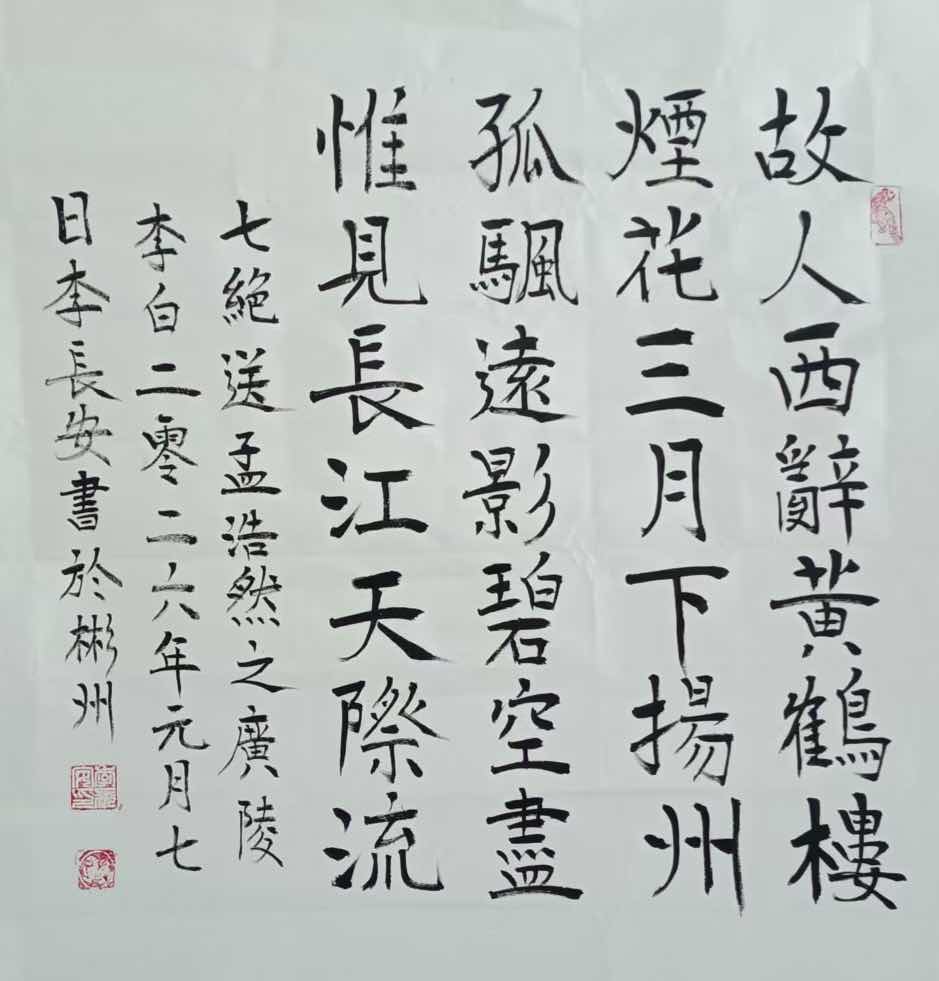 故人西辭黃鶴樓
煙花三月下揚州
孤颿遠影碧空盡
惟見長江天際流
七絕送孟浩然之廣陵
李白二零二六年元月七
日李長安書於彬州